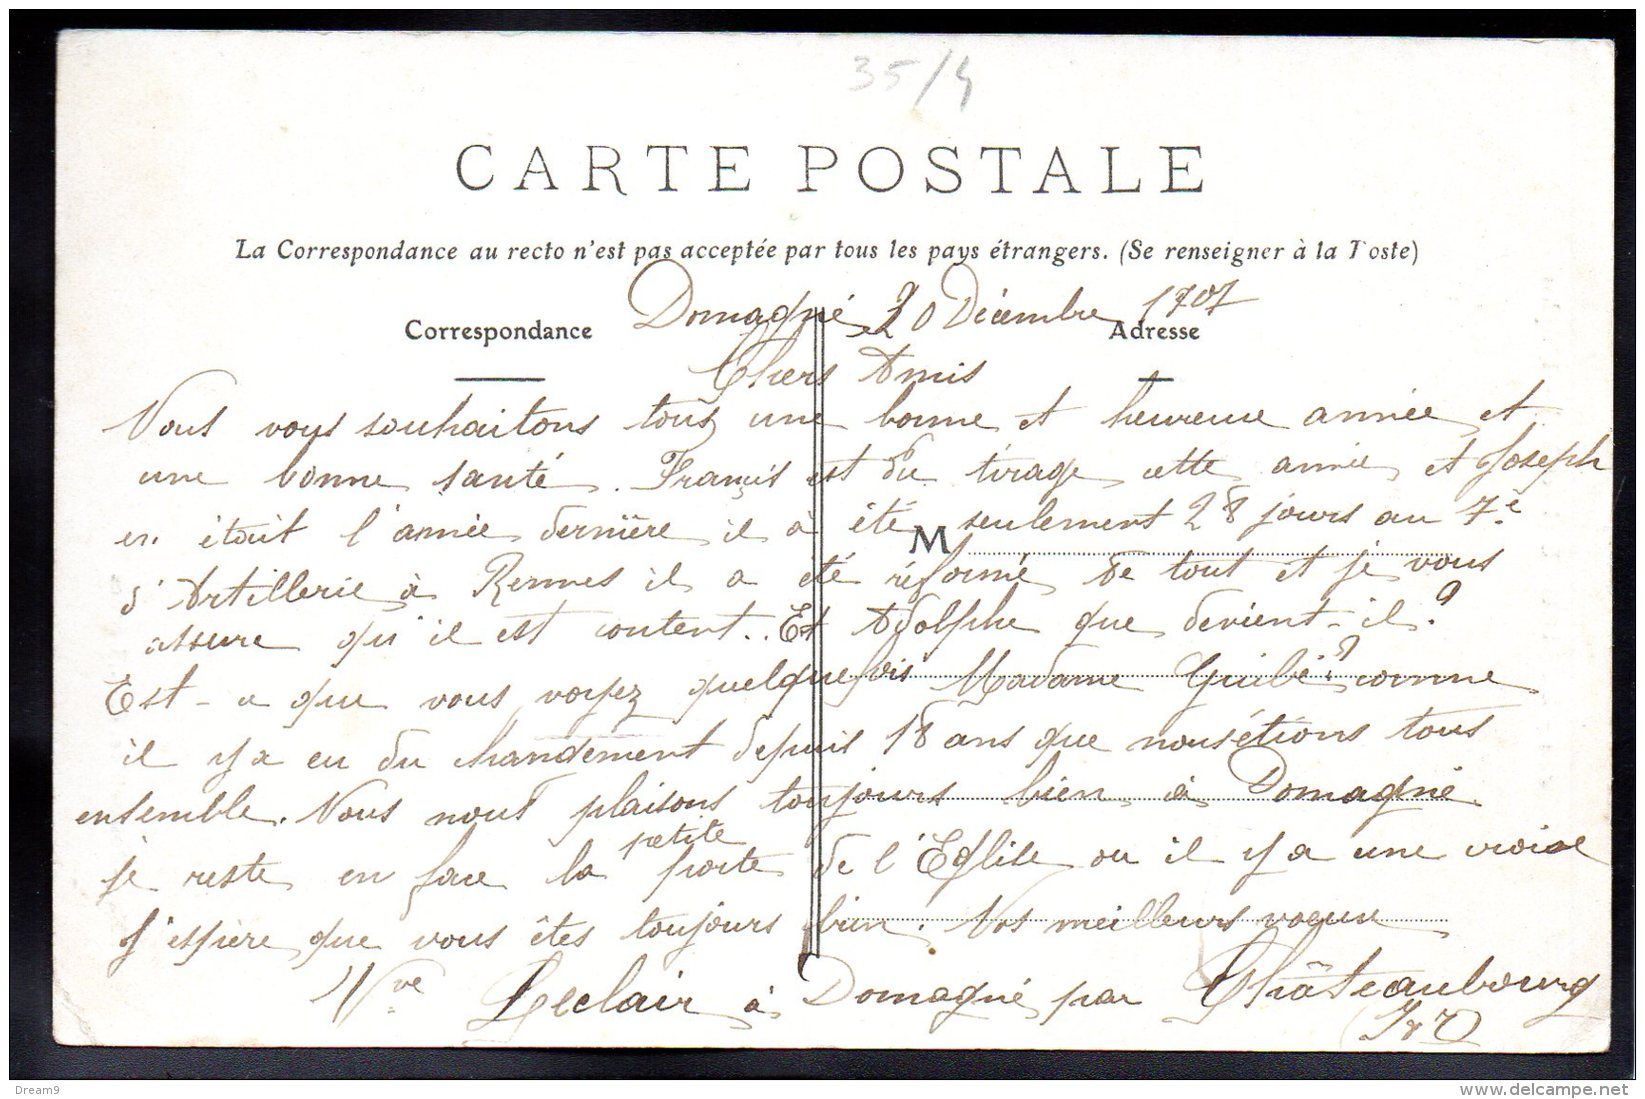 35/4
CARTE POSTALE
La Correspondance au recto n'est pas acceptée par tous les pays étrangers. (Se renseigner à la Poste)
Domagné 20 Décembre 1907
Correspondance
Adresse
Chers Amis
Nous vous souhaitons tous une bonne et heureuse année et
une bonne santé. Francis est du tirage cette année et Joseph
en était l'année dernière il à été seulement 28 jours au 7e
M
d'Artillerie à Rennes il a été réformé de tout et je vous
assure qu'il est content. Et Adolphe que devient-il?
Est-ce que vous voyez quelquefois Madame Guibé? comme
il y a eu du changement depuis 18 ans que nous étions tous
ensemble. Nous nous plaisons toujours bien à Domagné
je reste en face la petite porte de l'Eglise ou il y a une croix
J'espère que vous êtes toujours bien. Nos meilleurs voeux
Vve Leclair à Domagné par Châteaubourg
(I & V)
Dream9
www.delcampe.net